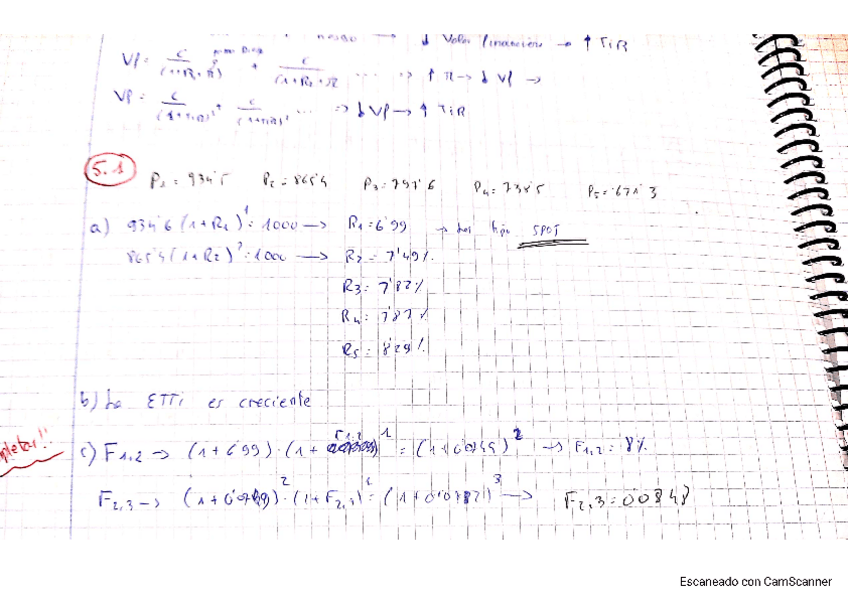 ↓ Valor financiero → ↑ TiR
VP = C/(1+R1+π) + C/(1+R2+π ... => ↑ π → ↓ VP →
VP = C/(1+TiR)¹ + C/(1+TiR)² ... => ↓ VP → ↑ TiR
5.1 P1 = 934'5 P2 = 865'4 P3 = 797'6 P4 = 734'5 P5 = 671'3
a) 934'6 (1+R1)¹ = 1000 → R1 = 6'99 → Los tipo SPOT
865'4 (1+R2)² = 1000 → R2 = 7'49%
R3 = 7'82%
R4 =
R5 = 8'29%
b) La ETTi es creciente
c) F1,2 → (1+6'99) · (1+F1,2)¹ = (1+0'0749)² → F1,2 = 8%
F2,3 → (1+0'0749)² · (1+F2,3)¹ = (1+0'0782)³ → F2,3 = 0'0848
Escaneado con CamScanner